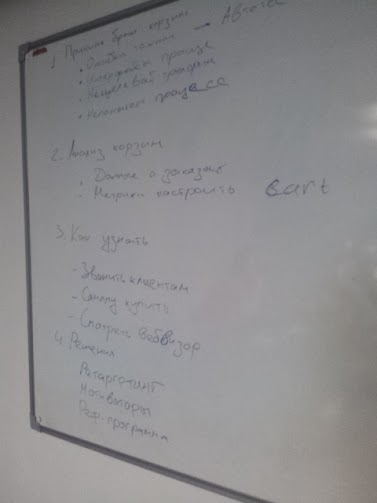 1 Причины брош корзин
• Ошибки
• Неудобный процесс
• Нецелевой трафик
• Непонятен процесс
2. Анализ корзин
- Данные о заказах
- Метрики настроить cart
3. Как узнать
- Звонить клиентам
- Самому купить
- Смотреть вебвизор
4. Решения
Ретаргетинг
Мотиваторы
Реф. программа